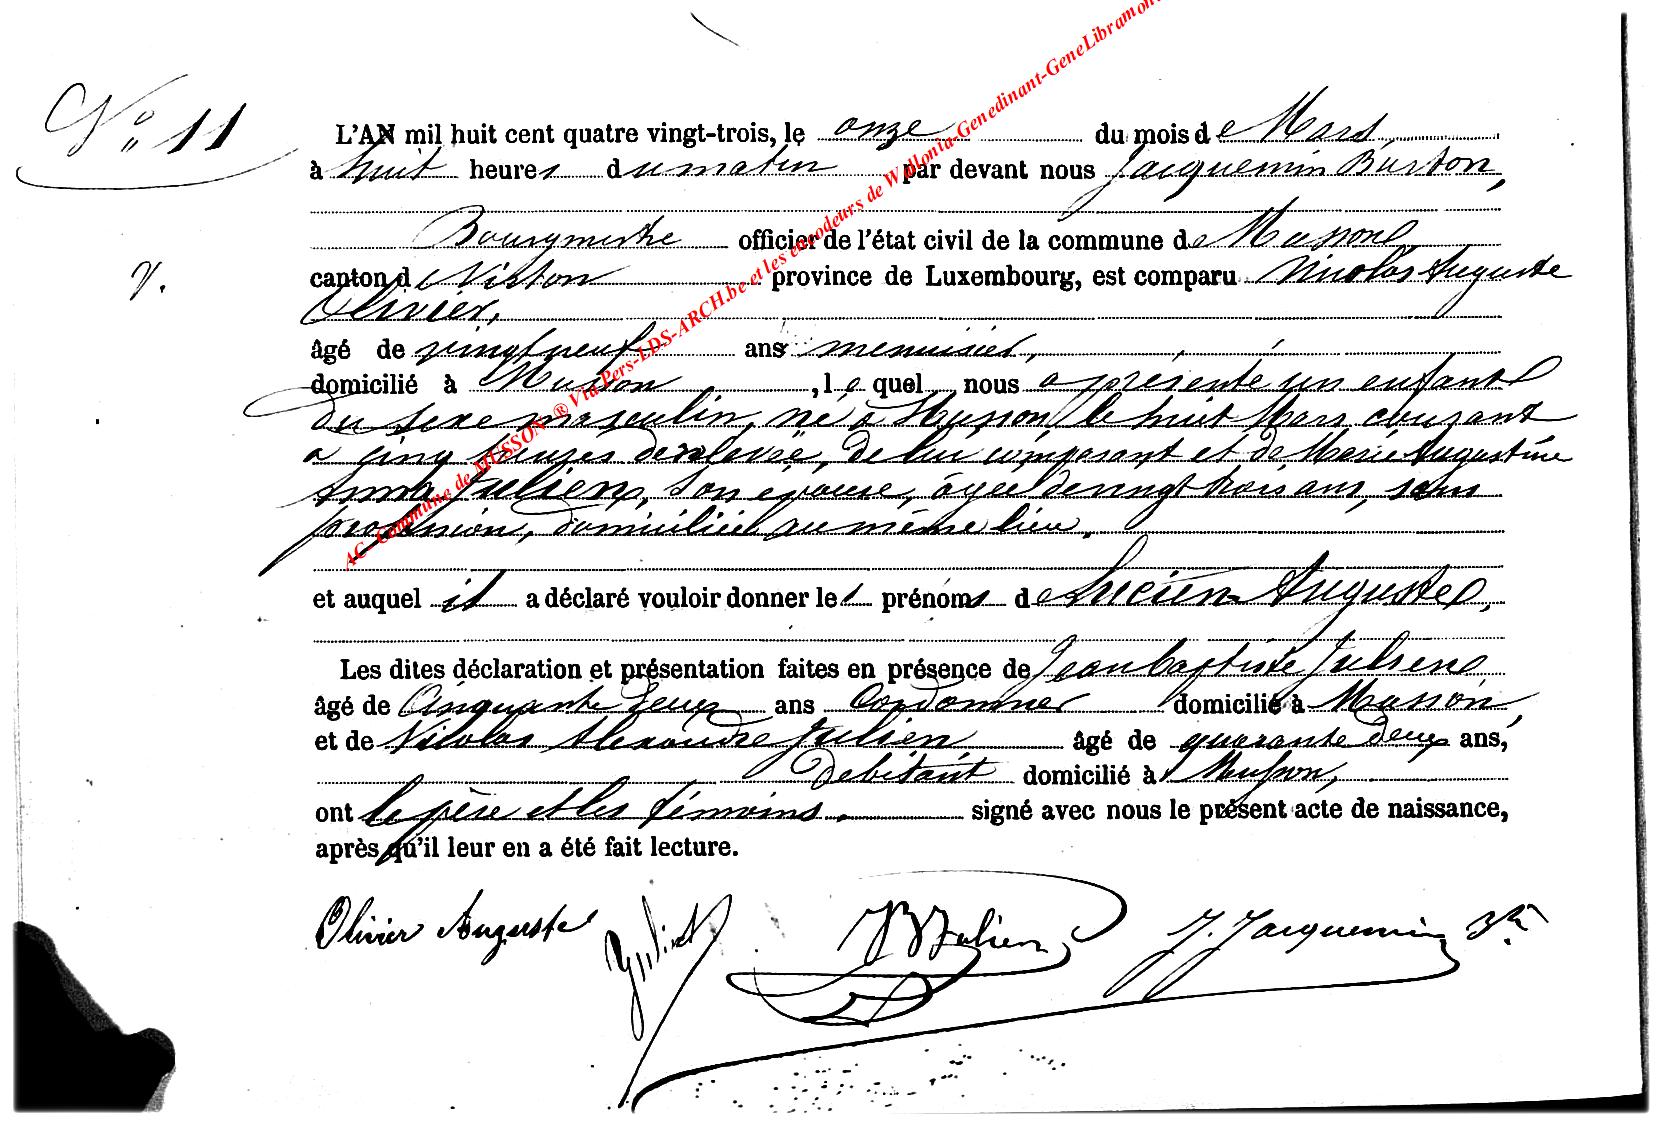 N° 11
L'AN mil huit cent quatre vingt-trois, le onze du mois de Mars
à huit heures du matin par devant nous Jacquemin Burton,
Bourgmestre officier de l'état civil de la commune de Musson,
canton de Virton province de Luxembourg, est comparu Nicolas Auguste
Olivier,
âgé de vingt neuf ans menuisier,
domicilié à Musson, lequel nous a présenté un enfant
du sexe masculin, né à Musson, le huit Mars courant
à cinq heures de relevée, de lui comparant et de Marie Augustine
Anna Julien, son épouse, âgée de vingt trois ans, sans
profession, domiciliée au même lieu,
et auquel il a déclaré vouloir donner les prénoms de Lucien Auguste,
Les dites déclaration et présentation faites en présence de Jean baptiste Julien
âgé de Cinquante deux ans Cordonnier domicilié à Musson,
et de Nicolas Alexandre Julien, âgé de quarante deux ans,
Débitant domicilié à Musson,
ont le père et les témoins. signé avec nous le présent acte de naissance,
après qu'il leur en a été fait lecture.
Olivier Auguste JB Julien J. Jacquemin
AC- Commune de MUSSON ® Via Pers-LDS-ARCH.be et les encodeurs de Wallonia-Genedinant-GeneLibramon